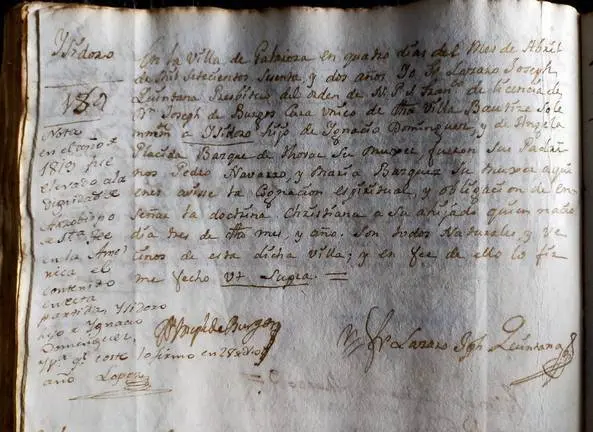 Ysidoro
En la Villa de Galaroza en quatro dias del Mes de Abril
de Mil Setecientos Sesenta y dos años Yo Fr. Lazaro Joseph
Quintana Presbitero del orden de N. P. S. Franco. de licencia de
Dn. Joseph de Burgos Cura Vnico de dha Villa Bautize Sole
mnemte. a Ysidoro hijo de Ygnacio Dominguez, y de Angela
Placida Bazquez de Su Muxer fueron Sus Padri
nos Pedro Navarro, y Maria Bazquez Su muxer aqui
enes avisse la Cognacion espiritual, y obligacion de en
señar la doctrina Christiana a Su aijado quien nacio
dia tres de dho mes, y año. Son todos Naturales, y ve
cinos de esta dicha Villa; y en fee de ello lo fir
me fecho Vt Supra.
Nota
en el año de
1819 fue
elevado a la
Dignidad de
Arzobispo
de Sta. Fee
en la Ame
rica el
contenido
en esta
partida, Ysidoro
hijo de Ygnacio
Dominguez,
y pa. qe. coste lo firmo en
año Lopez
Dn. Joseph de Burgos
Fr. Lazaro Jph Quintana